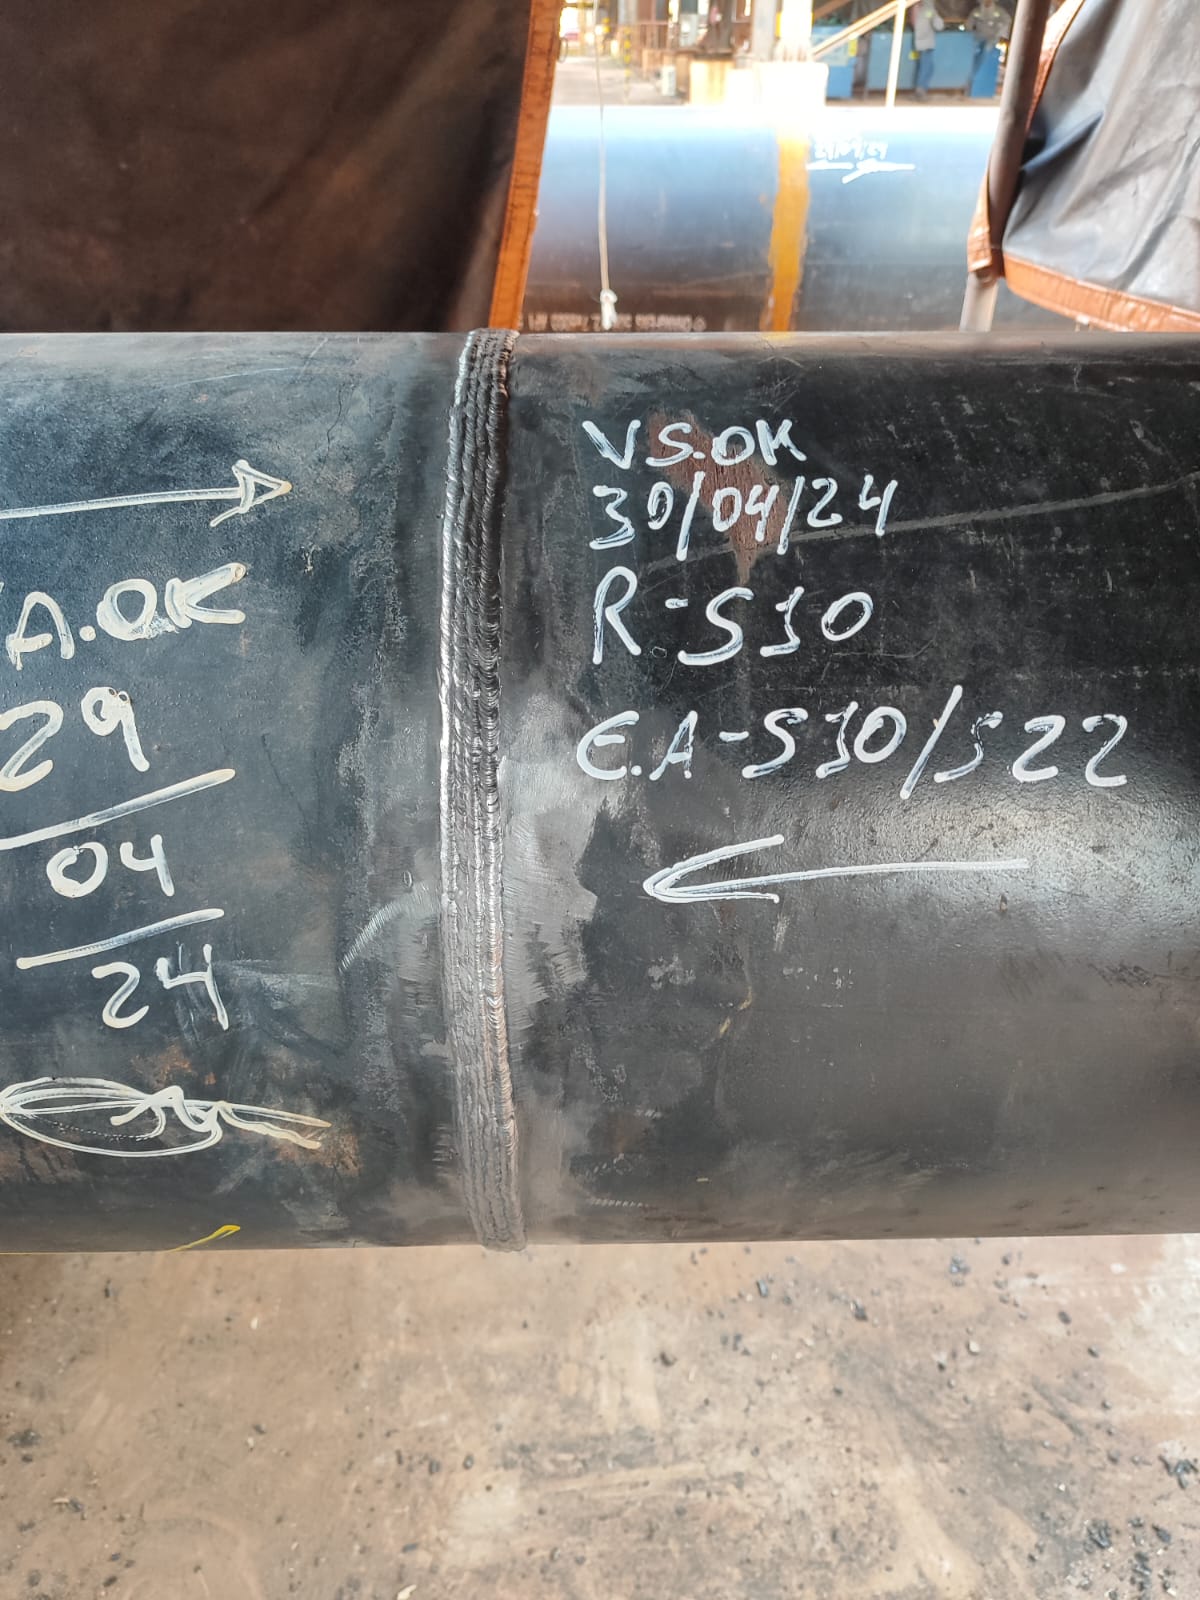 A.OK
29
04
24
VS.OK
30/04/24
R-S10
E.A-S10/S22